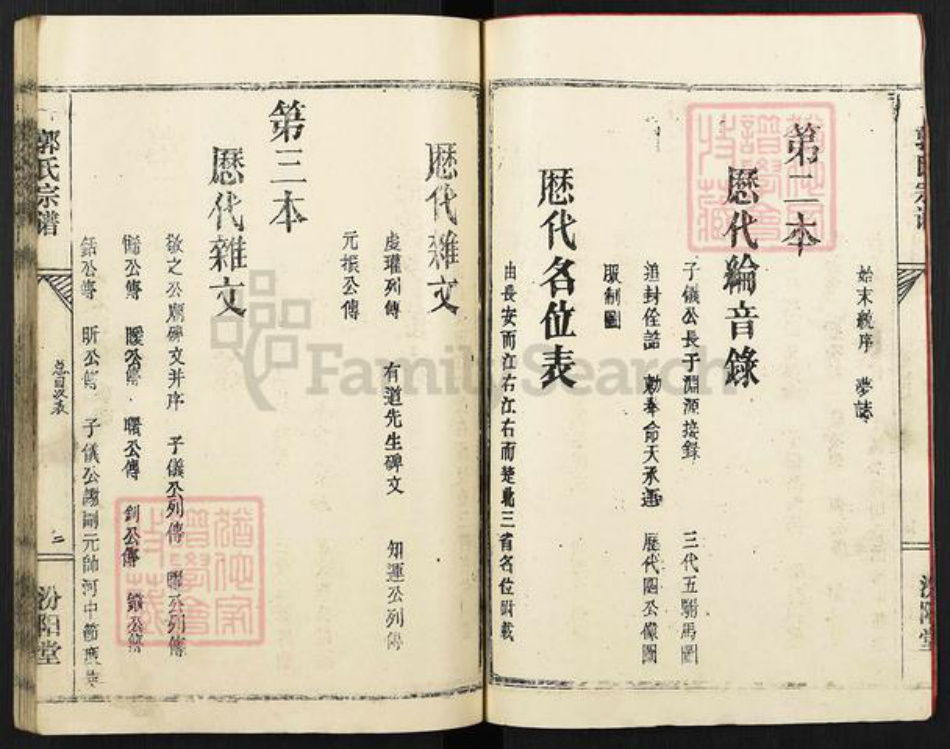 始末統序 夢誌
第二本
歷代綸音錄
子儀公長子淵源接錄 三代五駙馬圖
追封侄誥 勅奉命天承運 歷代四公像圖
服制圖
歷代名位表
由長安而江右江右而楚北三省名位附載
歷代雜文
虞瓘列傳 有道先生碑文 知運公列傳
元振公傳
第三本
歷代雜文
敬之公廟碑文并序 子儀公列傳 曜公列傳
晞公傳 曖公傳 曙公傳 釗公傳
銛公傳 昕公傳 子儀公讓副元帥河中節度使
郭氏宗谱
总目次表
二
汾阳堂
FamilySearch